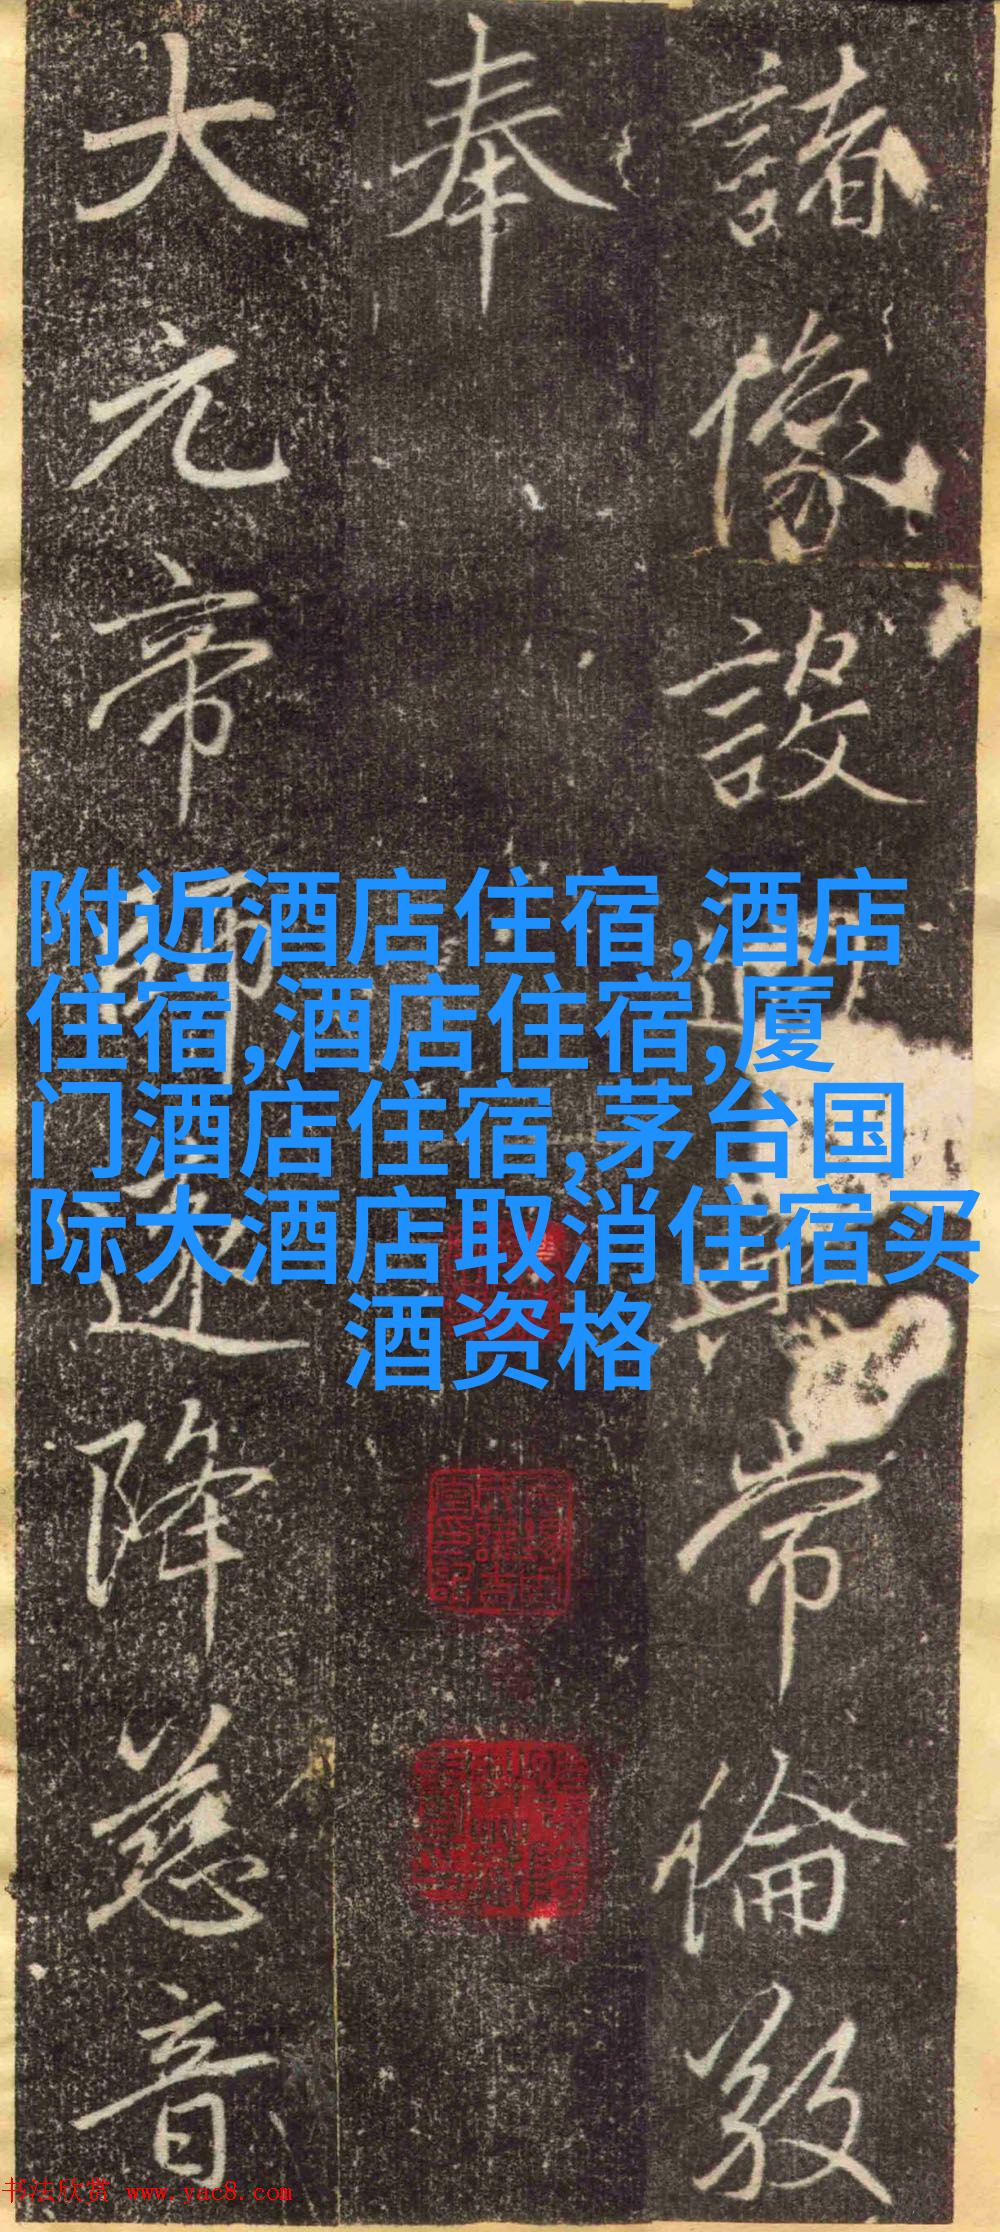 諸像設常倫
奉
大元帝師降慈音
附近酒店住宿,酒店
住宿,酒店住宿,厦
门酒店住宿,茅台国
际大酒店取消住宿买
酒资格
书法欣赏 www.yac8.com